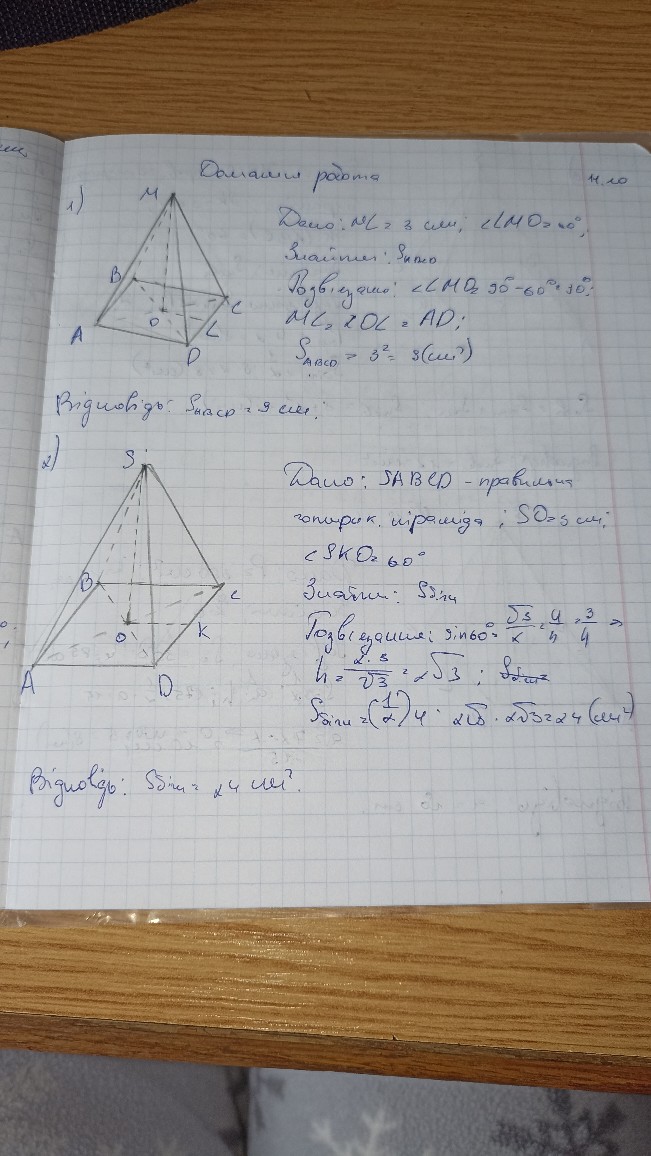 Домашня робота
11.10
1)
M
B
C
O
L
A
D
Дано: ML = 3 см; <LMO = 60°;
Знайти: S ABCD
Розв'язання: <LMO = 90° - 60° = 30°;
ML = 2OL = AD;
S ABCD = 3² = 9 (см²)
Відповідь: S ABCD = 9 см;
2)
S
B
C
O
K
A
D
Дано: SABCD - правильна
чотирик. піраміда; SO = 3 см;
<SKO = 60°
Знайти: Sбічн
Розв'язання: sin60° = √3/2 = 4/h = 3/4 =>
h = 2·3/√3 = 2√3;
Sбічн = (1/2) 4 · 2√3 · 2√3 = 24 (см²)
Відповідь: Sбічн = 24 см².